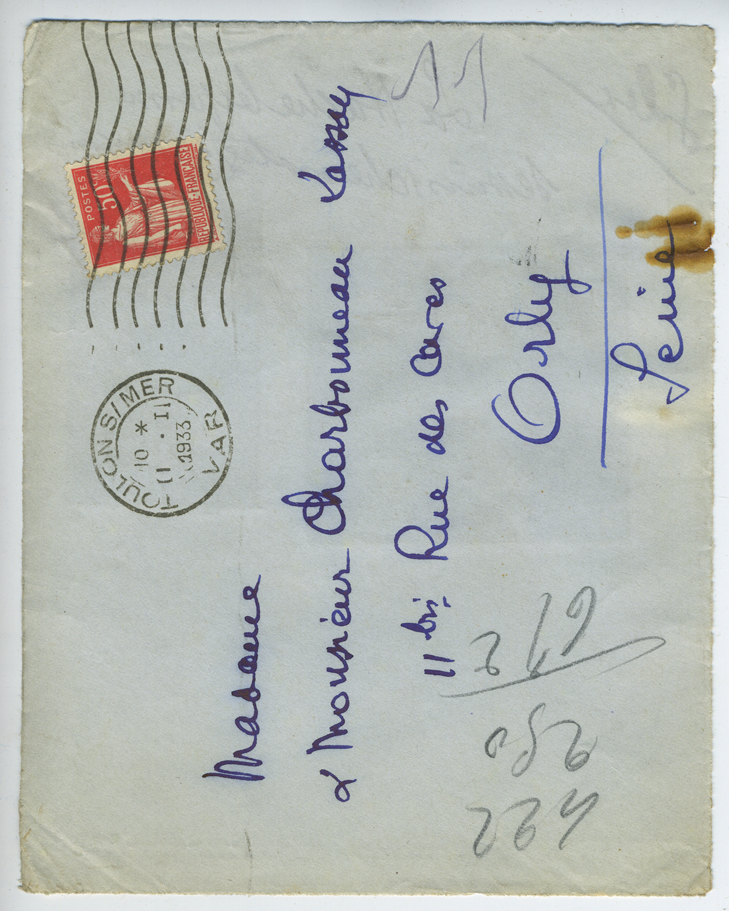 POSTES
50c
REPUBLIQUE FRANÇAISE
TOULON S/MER
10 *
11 . II
1933
VAR
Madame
& Monsieur Charbonneau Lassay
11 bis Rue des Caves
Orly
Seine
422
250
672